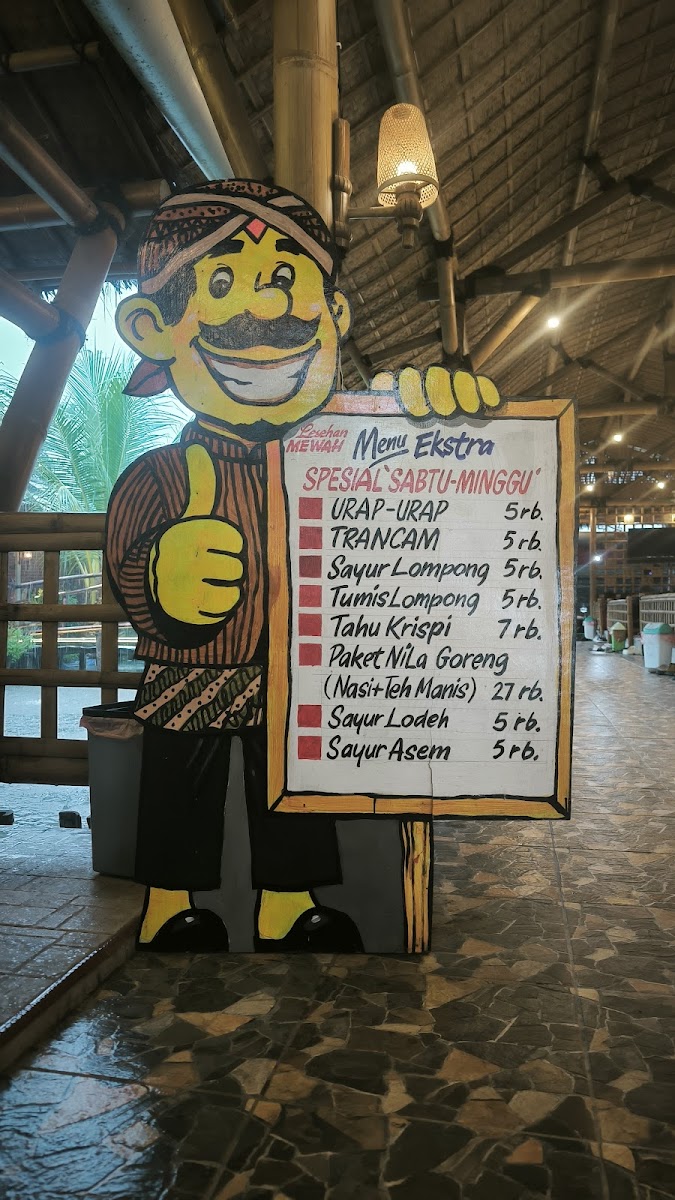 Lesehan
MEWAH
Menu Ekstra
SPESIAL "SABTU-MINGGU"
URAP-URAP 5rb.
TRANCAM 5rb.
Sayur Lompong 5rb.
Tumis Lompong 5rb.
Tahu Krispi 7rb.
Paket NiLa Goreng
(Nasi+Teh Manis) 27rb.
Sayur Lodeh 5rb.
Sayur Asem 5rb.